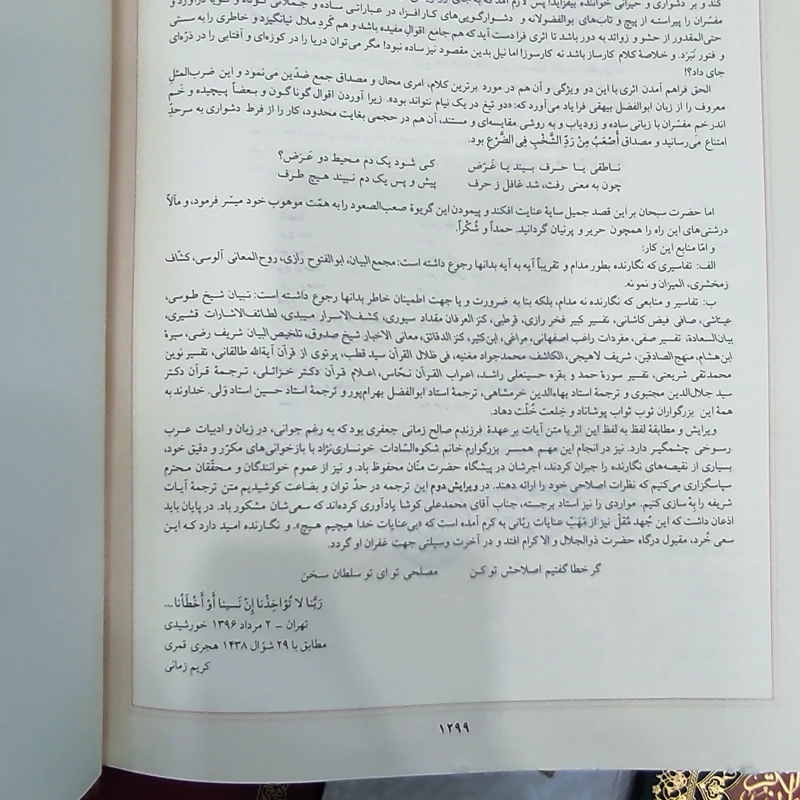 کند و بر دشواری و حیرانی خواننده بیفزاید! پس لازم آمد که به جای
مفسّران را پیراسته از پیچ و تاب‌های بوالفضولانه و دشوارگویی‌های کارافزا، در عباراتی ساده و جملاتی کوتاه و گویا درآورد و
حتی‌المقدور از حشو و زوائد به دور باشد تا اثری فرا دست آید که هم جامع اقوال مفیده باشد و هم گردِ ملال نیانگیزد و خاطری را به سستی
و فتور نَبَرَد. و خلاصهٔ کلام کارساز باشد نه کارسوز! اما نیل بدین مقصود نیز ساده نبود! مگر می‌توان دریا را در کوزه‌ای و آفتابی را در ذرّه‌ای
جای داد؟!
الحق فراهم آمدن اثری با این دو ویژگی و آن هم در مورد برترین کلام، امری محال و مصداق جمع ضدّین می‌نمود و این ضرب‌المثلِ
معروف را از زبان ابوالفضل بیهقی فرا یاد می‌آورد که: «دو تیغ در یک نیام نتواند بود». زیرا آوردن اقوال گوناگون و بعضاً پیچیده و خَمِ
اندر خمِ مفسّران با زبانی ساده و زودیاب و به روشی مقایسه‌ای و مستند، آن هم در حجمی بغایت محدود، کار را از فرط دشواری به سرحدِّ
امتناع می‌رسانید و مصداق أَصْعَبُ مِنْ رَدِّ الشَّخْبِ فِی الضَّرْعِ بود.
ناطقی یا حرف بیند یا غَرَض کی شود یک دم محیط دو عَرَض؟
چون به معنی رفت، شد غافل ز حرف پیش و پس یک دم نبیند هیچ طرف
اما حضرت سبحان بر این قصد جمیل سایهٔ عنایت افکند و پیمودن این گریوهٔ صعب‌الصعود را به همّت موهوب خود میسّر فرمود، و مآلاً
درشتی‌های این راه را همچون حریر و پرنیان گردانید. حمداً و شُکْراً.
و امّا منابع این کار:
الف: تفاسیری که نگارنده بطور مدام و تقریباً آیه به آیه بدانها رجوع داشته است: مجمع‌البیان، ابوالفتوح رازی، روح‌المعانی آلوسی، کشّاف
زمخشری، المیزان و نمونه.
ب: تفاسیر و منابعی که نگارنده نه مدام، بلکه بنا به ضرورت و یا جهت اطمینان خاطر بدانها رجوع داشته است: تبیان شیخ طوسی،
عیّاشی، صافی فیض کاشانی، تفسیر کبیر فخر رازی، قرطبی، کنز العرفان مقداد سیوری، کشف‌الاسرار میبدی، لطائف‌الاشارات قشیری،
بیان‌السعادة، تفسیر صفی، مفردات راغب اصفهانی، مراغی، ابن‌کثیر، کنز الدقائق، معانی الاخبار شیخ صدوق، تلخیص‌البیان شریف رضی، سیرهٔ
ابن‌هشام، منهج‌الصادقین، شریف لاهیجی، الکاشف محمدجواد مغنیه، فی ظلال القرآن سید قطب، پرتوی از قرآن آیةالله طالقانی، تفسیر نوین
محمدتقی شریعتی، تفسیر سورهٔ حمد و بقره حسینعلی راشد، اعراب القرآن نحّاس، اعلام قرآن دکتر خزائلی، ترجمهٔ قرآن دکتر
سید جلال‌الدین مجتبوی و ترجمهٔ استاد بهاءالدین خرمشاهی، ترجمهٔ استاد ابوالفضل بهرام‌پور و ترجمهٔ استاد حسین استاد ولی. خداوند به
همهٔ این بزرگواران ثوب ثواب پوشاناد و خِلعت خُلّت دهاد.
ویرایش و مطابقهٔ لفظ به لفظ این اثر با متن آیات بر عهدهٔ فرزندم صالح زمانی جعفری بود که به رغم جوانی، در زبان و ادبیات عرب
رسوخی چشمگیر دارد. نیز در انجام این مهم همسر بزرگوارم خانم شکوه‌السّادات خونساری‌نژاد با بازخوانی‌های مکرّر و دقیق خود،
بسیاری از نقیصه‌های نگارنده را جبران کردند، اجرشان در پیشگاه حضرت منّان محفوظ باد. و نیز از عموم خوانندگان و محقّقان محترم
سپاسگزاری می‌کنیم که نظرات اصلاحی خود را ارائه دهند. در ویرایش دوم این ترجمه در حدّ توان و بضاعت کوشیدیم متن ترجمهٔ آیات
شریفه را بِهْ سازی کنیم. مواردی را نیز استاد برجسته، جناب آقای محمدعلی کوشا یادآوری کرده‌اند که سعی‌شان مشکور باد. در پایان باید
اذعان داشت که این جُهد مُقلّ نیز از مَهَبِّ عنایات ربّانی به کرم آمده است که «بی‌عنایات خدا هیچیم هیچ». و نگارنده امید دارد که این
سعی خُرد، مقبول درگاه حضرت ذوالجلال و الاکرام افتد و در آخرت وسیلتی جهت غفران او گردد.
گر خطا گفتیم اصلاحش تو کن مصلحی تو ای تو سلطان سخن
رَبَّنا لا تُؤاخِذْنا إِنْ نَسینا أَوْ أَخْطَأْنا...
تهران – ۲ مرداد ۱۳۹۶ خورشیدی
مطابق با ۲۹ شوّال ۱۴۳۸ هجری قمری
کریم زمانی
۱۲۹۹